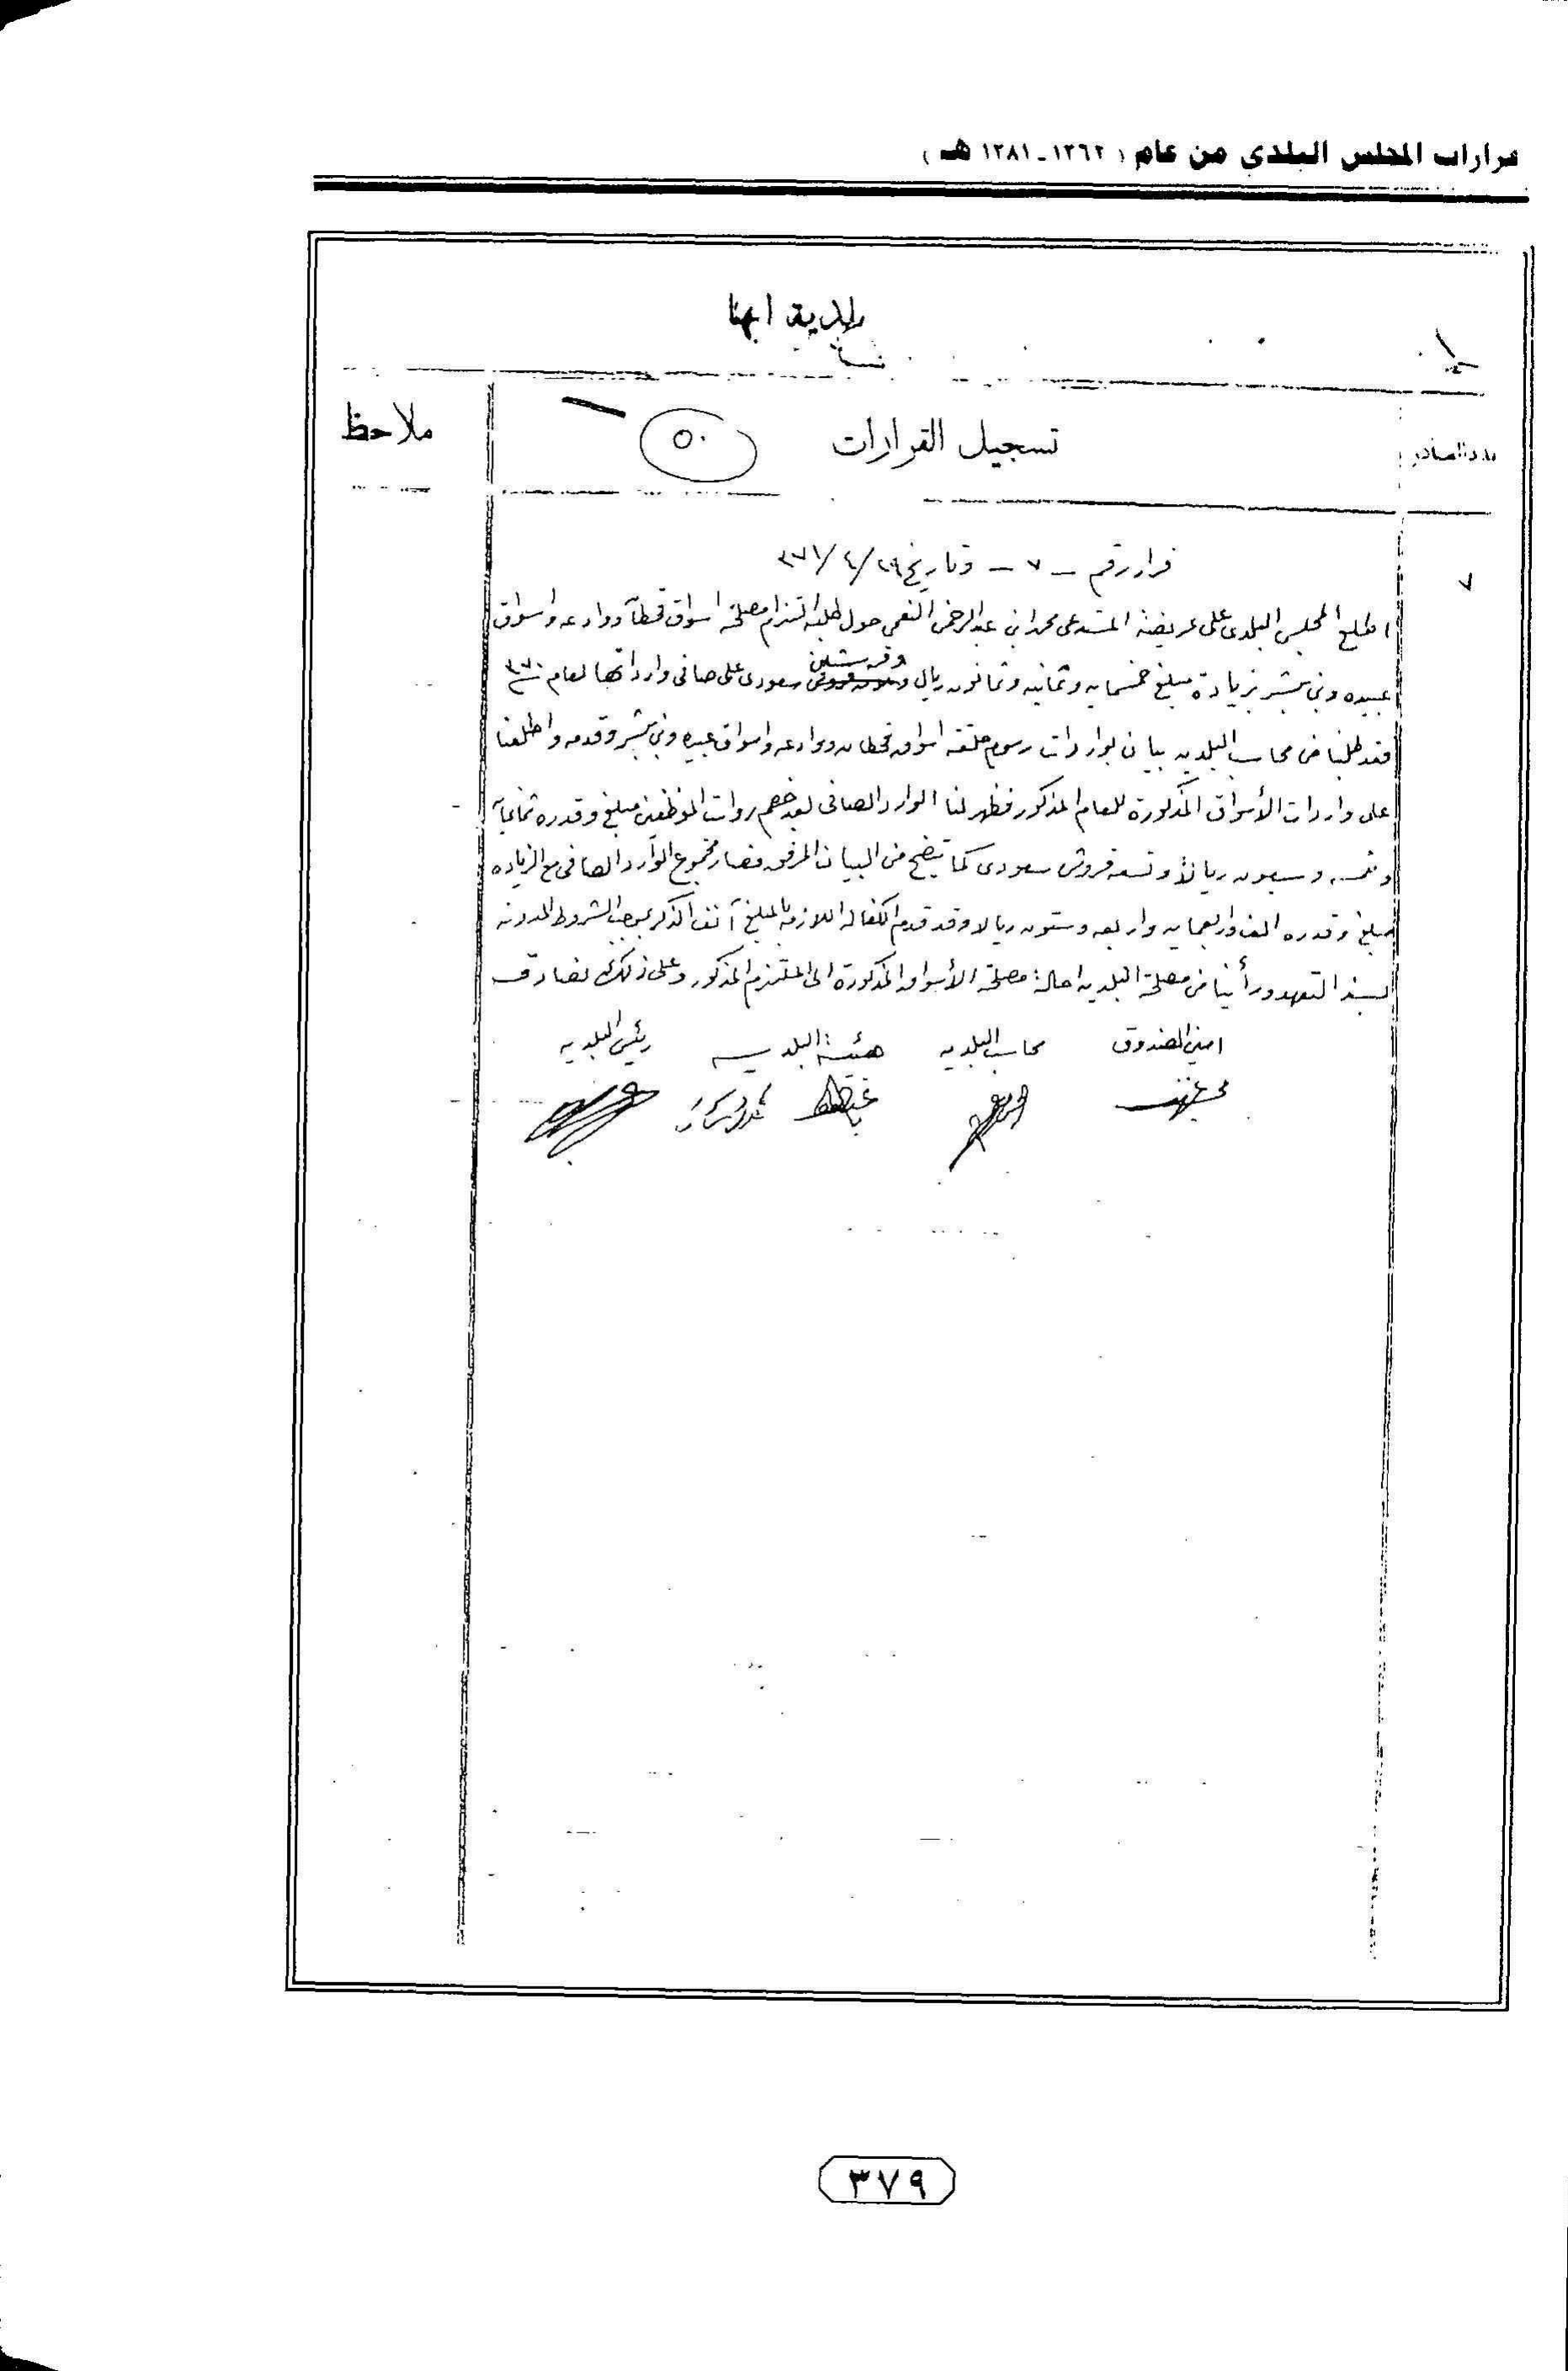 قرارات المجلس البلدى من عام ( ١٣٦٢ - ١٣٨١ هـ )
بلدية ابها
عدد الصادر
تسجيل القرارات
٥٠
ملاحظ
٧
قرار رقم - ٧ - وتاريخ ٢٩/ ٤/ ٣٧١
اطلع المجلس البلدى على عريضة المستدعى محمد ابن عبدالرحمن النعمى حول طلبه التزام مصلحة اسواق قحطان ووادعه واسواق
عبيده وبنى بشر بزيادة مبلغ خمسمايه وثمانيه وثمانون ريال وقرشين سعودى على صافى وارداتها لعام ٣٧٠
فقد طلبنا من محاسب البلديه بيان بواردات رسوم حلقة اسواق قحطان ووادعه واسواق عبيده وبنى بشر وقدمه واطلعنا
على واردات الأسواق المذكورة للعام المذكور فظهر لنا الوارد الصافى بعد خصم رواتب الموظفين مبلغ وقدره ثمانماية
وخمسه وسبعون ريالاً وتسعة قروش سعودى كما يتضح من البيان المرفق فصار مجموع الوارد الصافى مع الزياده
مبلغ وقدره الف واربعمايه واربعه وستون ريالا وقد قدم الكفاله اللازمة بالمبلغ آنف الذكر بموجب الشروط المدونه
بسند التعهد ورأينا من مصلحة البلديه احالة مصلحة الأسواق المذكورة الى الملتزم المذكور وعلى ذلك نصادق
امين الصندوق محاسب البلديه هيئة البلديه رئيس البلديه
٣٧٩